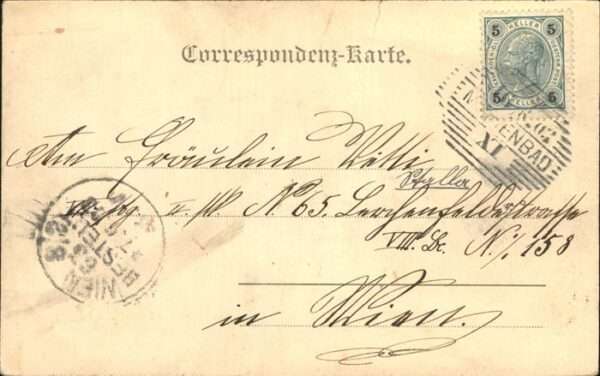 Correspondenz-Karte.
5 HELLER 5
5 HELLER 5
ENBAD
XI
An Fräulein Vetti
Stalla
No 65. Lerchenfelderstrasse
VIII. Bc. N. 158
in Wien.
WIEN
BESTELLT